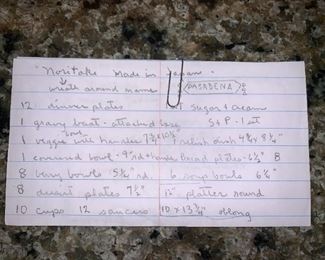 "Noritake Made in Japan"
wreath around name PASADENA
12 dinner plates 1 sugar & cream
1 gravy boat - attached base S & P - 1 set
1 veggie bowl with handles 7 3/4 x 10 1/2 1 relish dish 4 3/4 x 8 1/4"
1 covered bowl - 9" rd + bread plates - 6 1/2" 8
8 berry bowls 5 1/4" rd. 6 soup bowls 6 1/4"
8 dessert plates 7 1/2" 12" platter round
10 cups 12 saucers 10 x 13 3/4" oblong